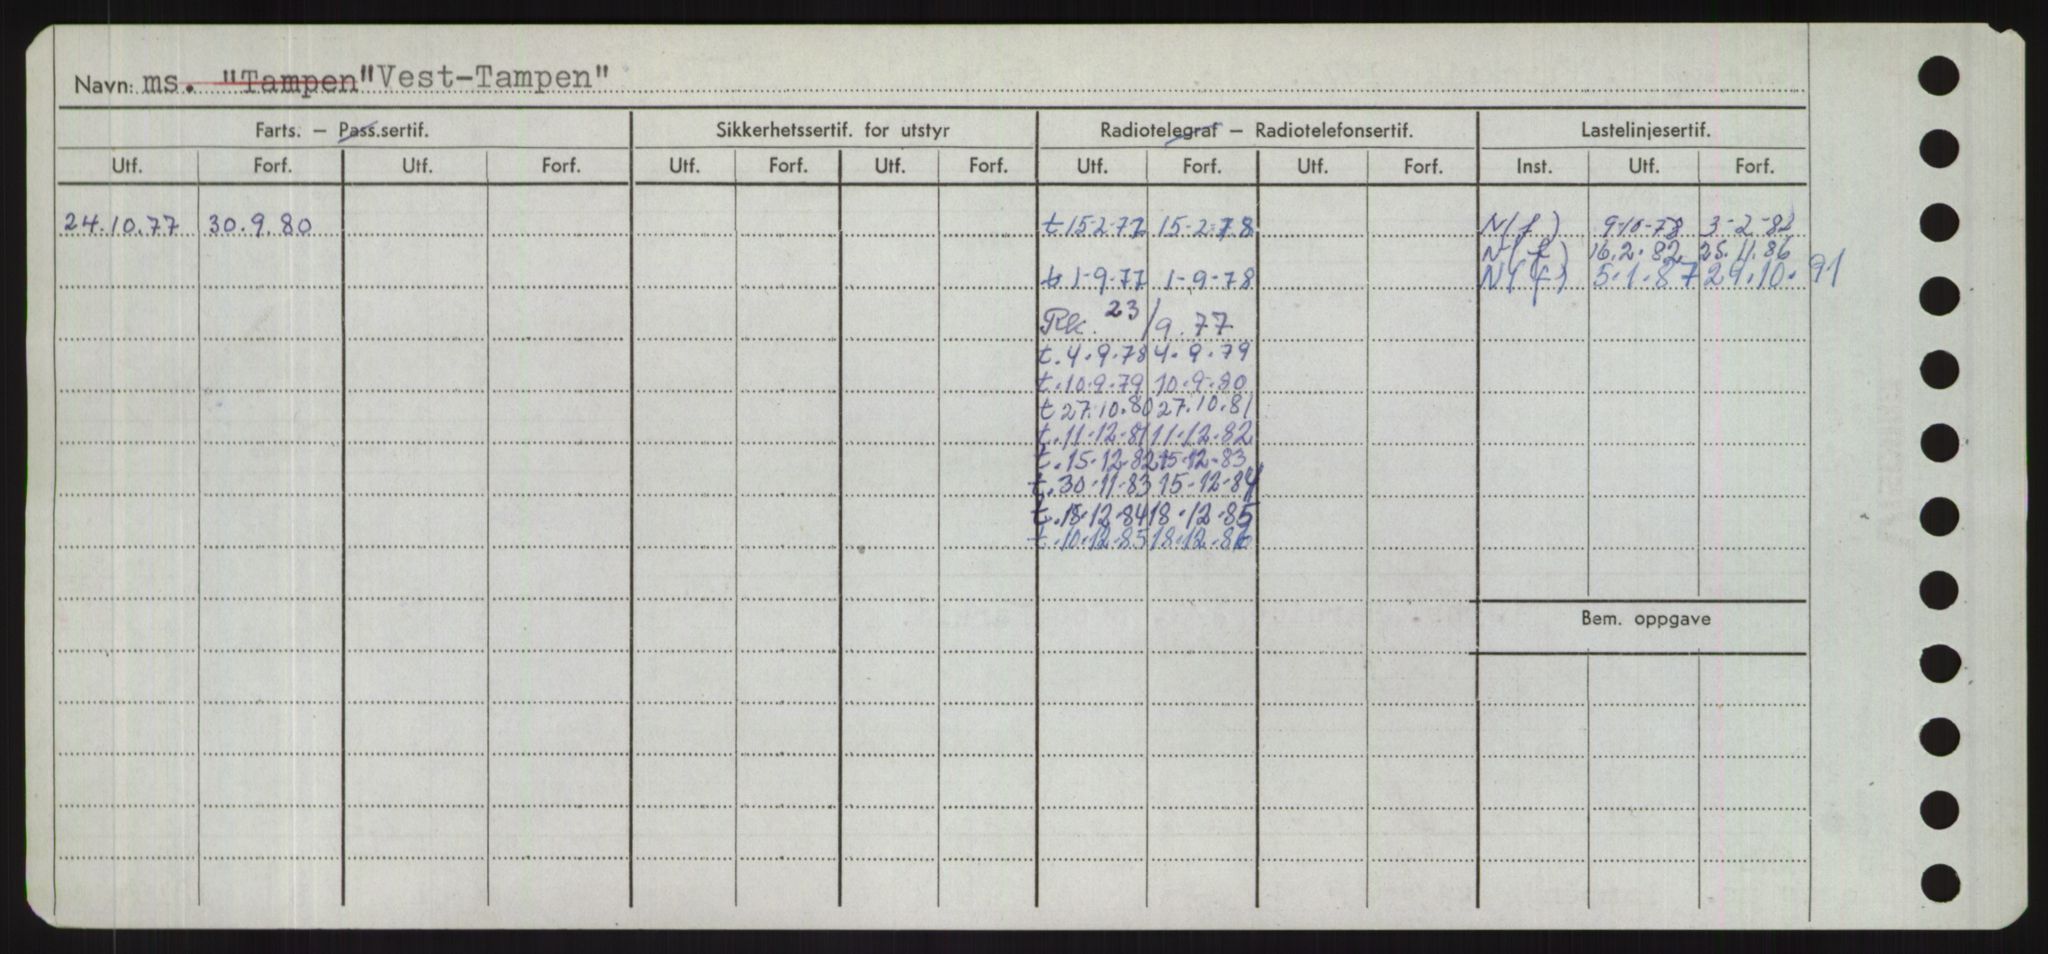 Navn: ms. "Tampen "Vest-Tampen"
Farts. – Pass.sertif. Sikkerhetssertif. for utstyr Radiotelegraf – Radiotelefonsertif. Lastelinjesertif.
Utf. Forf. Utf. Forf. Utf. Forf. Utf. Forf. Utf. Forf. Utf. Forf. Inst. Utf. Forf.
24.10.77 30.9.80 t 15-2-77 15-2-78 N(f) 9-10-78 3-2-82
N(f) 16.2.82 25.11.86
t 1-9-77 1-9-78 N(f) 5.1.87 29.10.91
Rk. 23/9.77
t.4.9.78 4.9.79
t.10.9.79 10.9.80
t 27.10.80 27.10.81
t.11.12.81 11.12.82
t.15.12.82 15.12.83
t.30.11.83 15.12.84
t.18.12.84 18.12.85
t.10.12.85 18.12.86
Bem. oppgave